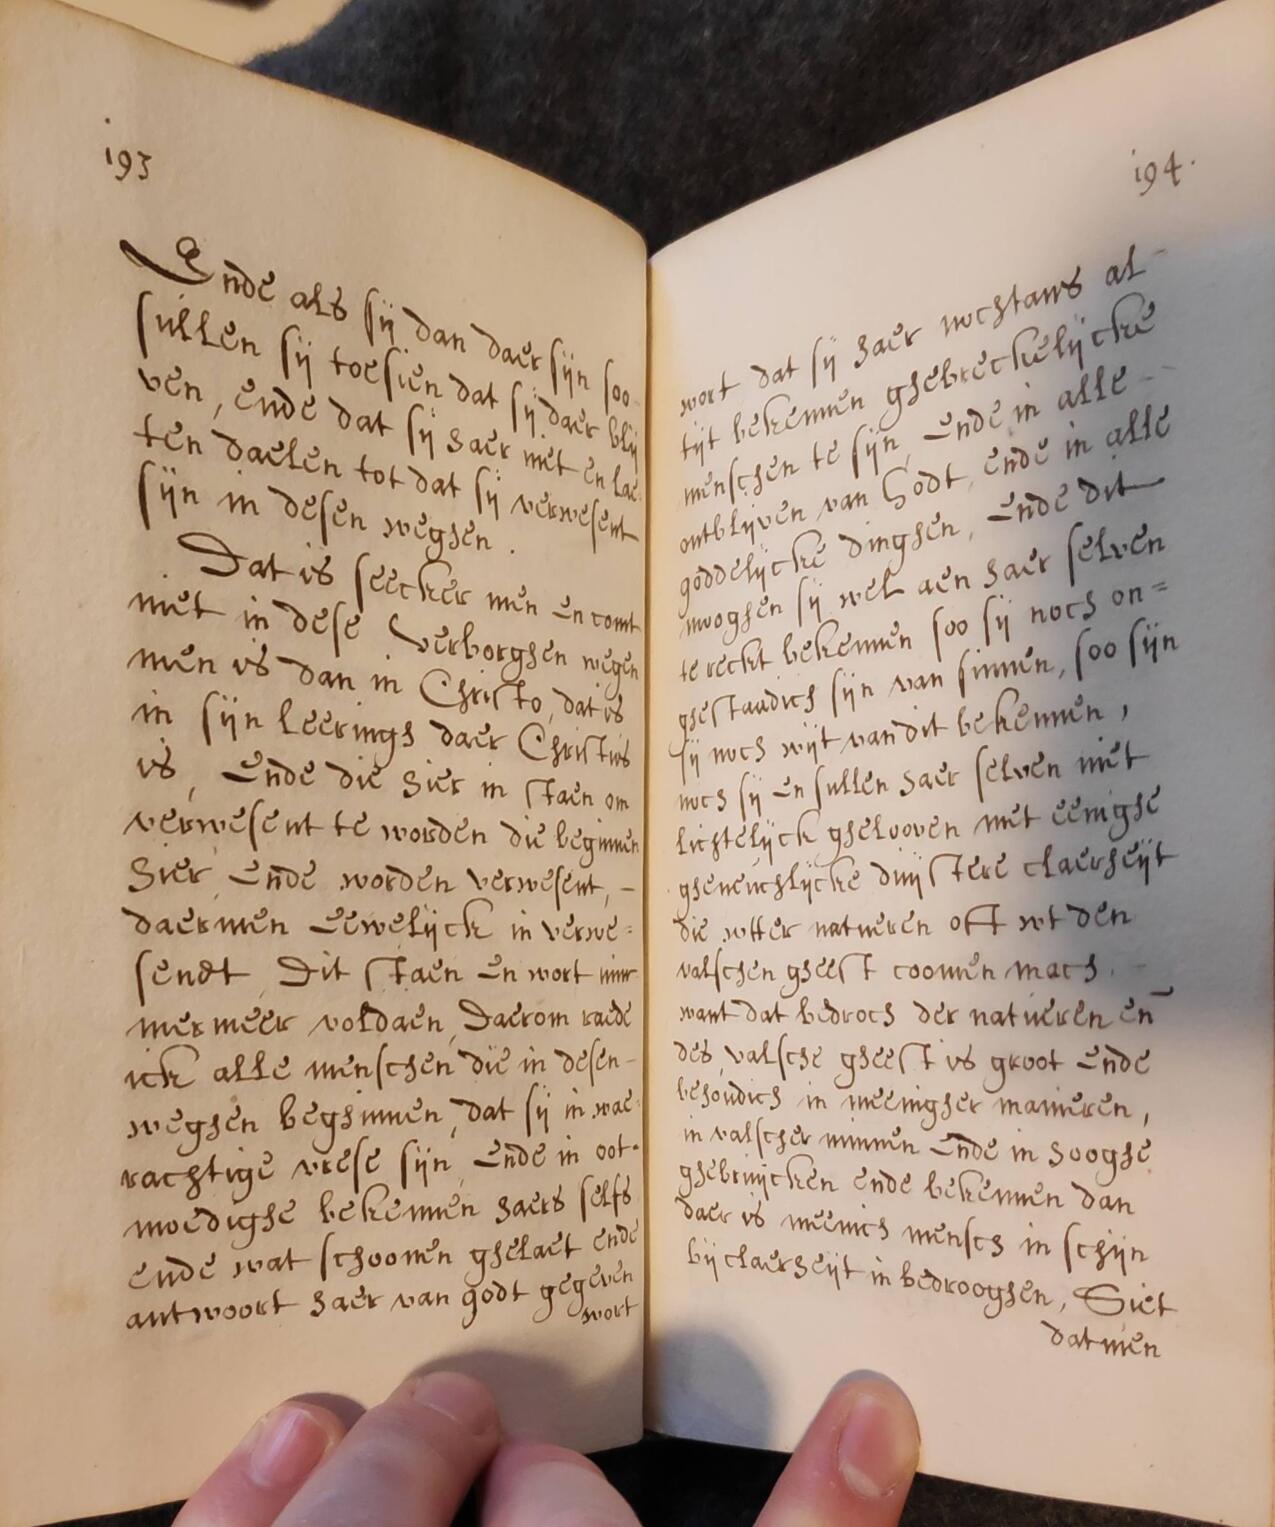 193
Ende als sij dan daer sijn soo
sullen sij toesien dat sij daer blij
ven, ende dat sij haer niet en lae
ten daelen tot dat sij verwesent
sijn in desen weghen.
Dat is seecker men en comt
niet in dese verborghen wegen
men is dan in Christo, dat is
in sijn leeringh daer Christus
is, ende die hier in staen om
verwesent te worden die beginnen
hier ende worden verwesent, -
daermen eewelijck in verwe=
sendt, Dit staen en wort nim
mermeer voldaen, Daerom raede
ick alle menschen die in desen-
weghen beghinnen, dat sij in wae
rachtige vrese sijn, ende in oot-
moedighe bekennen haers selfs
ende wat schoonen ghelaet ende
antwoort haer van godt gegeven
wort
194.
wort dat sij haer nochtans al-
tijt bekennen ghebreckelijcke
menschen te sijn, ende in alle -
ontblijven van Godt, ende in alle
goddelijcke dinghen, ende dit
mooghen sij wel aen haer selven
te recht bekennen soo sij noch on=
ghestaudich sijn van sinnen, soo sijn
sij noch wijt van dit bekennen,
noch sij en sullen haer selven niet
lichtelijck ghelooven met eenighe
gheneuchlijcke duijstere claerheijt
die wtter natueren oft wt den
valschen gheest coomen mach. -
want dat bedroch der natueren en̄
des valsche gheest is groot ende
behoudich in meenigher manieren,
in valscher minnen ende in hooghe
ghebruijcken ende bekennen dan
daer is meenich mensch in schijn
bij claerheijt in bedrooghen, Siet
datmen